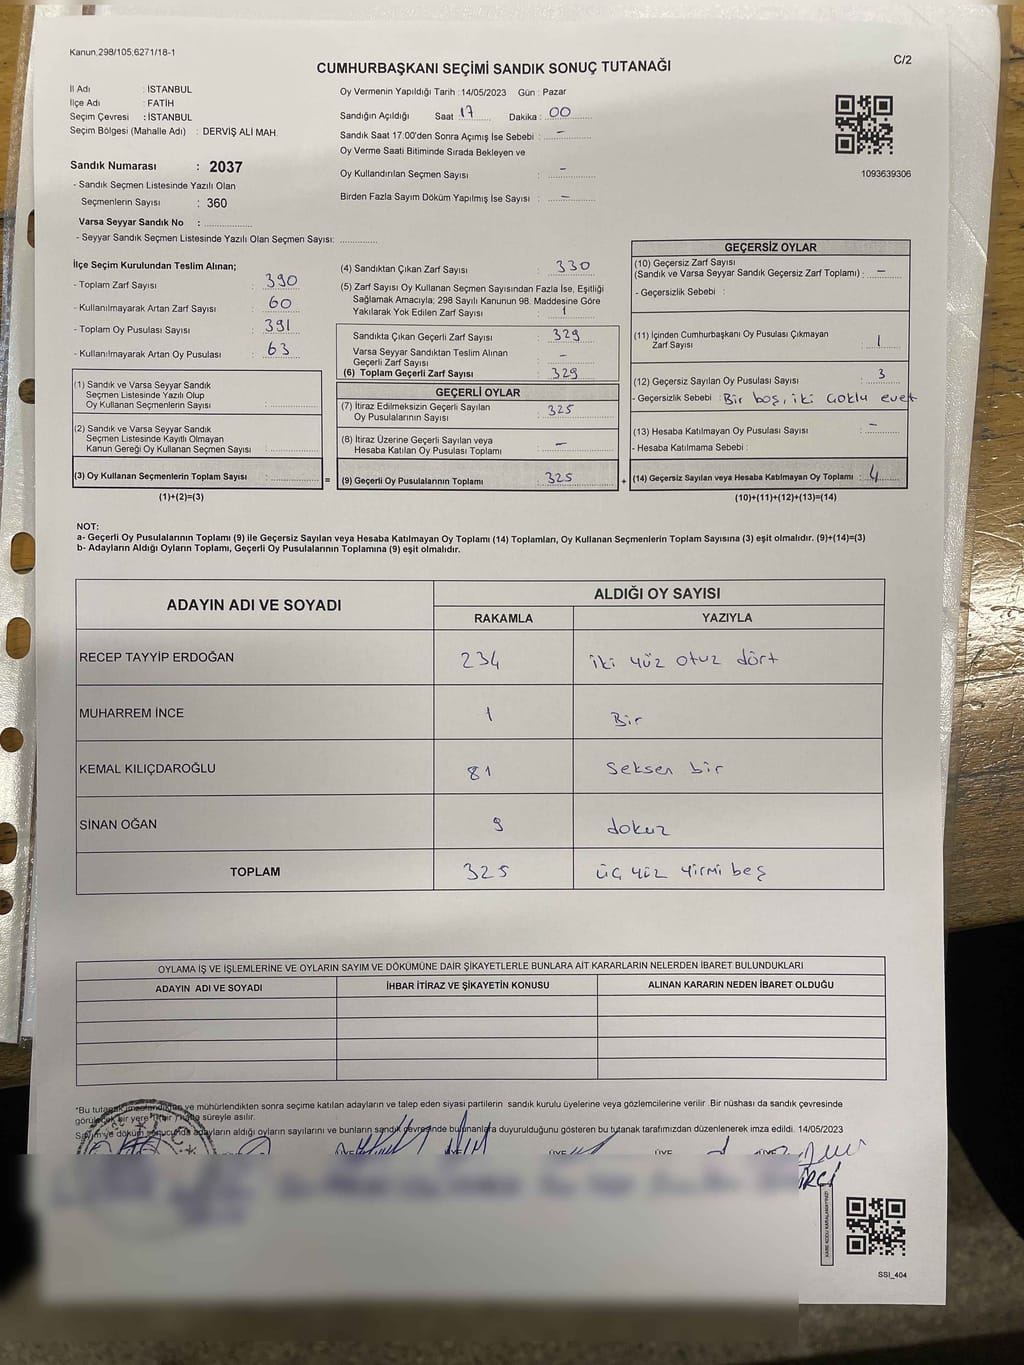 Kanun.298/105,6271/18-1
C/2
CUMHURBAŞKANI SEÇİMİ SANDIK SONUÇ TUTANAĞI
İl Adı : İSTANBUL
İlçe Adı : FATİH
Seçim Çevresi : İSTANBUL
Seçim Bölgesi (Mahalle Adı) : DERVİŞ ALİ MAH.
Sandık Numarası : 2037
- Sandık Seçmen Listesinde Yazılı Olan
Seçmenlerin Sayısı : 360
Varsa Seyyar Sandık No : ..................
- Seyyar Sandık Seçmen Listesinde Yazılı Olan Seçmen Sayısı: ..............
Oy Vermenin Yapıldığı Tarih : 14/05/2023 Gün : Pazar
Sandığın Açıldığı Saat 17 Dakika : 00
Sandık Saat 17:00'den Sonra Açımış İse Sebebi : –
Oy Verme Saati Bitiminde Sırada Bekleyen ve
Oy Kullandırılan Seçmen Sayısı : –
Birden Fazla Sayım Döküm Yapılmış İse Sayısı : –
1093639306
İlçe Seçim Kurulundan Teslim Alınan;
- Toplam Zarf Sayısı : 390
- Kullanılmayarak Artan Zarf Sayısı : 60
- Toplam Oy Pusulası Sayısı : 391
- Kullanılmayarak Artan Oy Pusulası : 63
(1) Sandık ve Varsa Seyyar Sandık
Seçmen Listesinde Yazılı Olup
Oy Kullanan Seçmenlerin Sayısı : ..............
(2) Sandık ve Varsa Seyyar Sandık
Seçmen Listesinde Kayıtlı Olmayan
Kanun Gereği Oy Kullanan Seçmen Sayısı : ..............
(3) Oy Kullanan Seçmenlerin Toplam Sayısı : .............. =
(1)+(2)=(3)
(4) Sandıktan Çıkan Zarf Sayısı : 330
(5) Zarf Sayısı Oy Kullanan Seçmen Sayısından Fazla İse, Eşitliği
Sağlamak Amacıyla; 298 Sayılı Kanunun 98. Maddesine Göre
Yakılarak Yok Edilen Zarf Sayısı : 1
Sandıkta Çıkan Geçerli Zarf Sayısı : 329
Varsa Seyyar Sandıktan Teslim Alınan
Geçerli Zarf Sayısı : –
(6) Toplam Geçerli Zarf Sayısı : 329
GEÇERLİ OYLAR
(7) İtiraz Edilmeksizin Geçerli Sayılan
Oy Pusulalarının Sayısı : 325
(8) İtiraz Üzerine Geçerli Sayılan veya
Hesaba Katılan Oy Pusulası Toplamı : –
(9) Geçerli Oy Pusulalarının Toplamı : 325 +
GEÇERSİZ OYLAR
(10) Geçersiz Zarf Sayısı
(Sandık ve Varsa Seyyar Sandık Geçersiz Zarf Toplamı) : –
- Geçersizlik Sebebi :
(11) İçinden Cumhurbaşkanı Oy Pusulası Çıkmayan
Zarf Sayısı : 1
(12) Geçersiz Sayılan Oy Pusulası Sayısı : 3
- Geçersizlik Sebebi : Bir boş, iki çoklu evet
(13) Hesaba Katılmayan Oy Pusulası Sayısı : –
- Hesaba Katılmama Sebebi :
(14) Geçersiz Sayılan veya Hesaba Katılmayan Oy Toplamı : 4
(10)+(11)+(12)+(13)=(14)
NOT:
a- Geçerli Oy Pusulalarının Toplamı (9) ile Geçersiz Sayılan veya Hesaba Katılmayan Oy Toplamı (14) Toplamları, Oy Kullanan Seçmenlerin Toplam Sayısına (3) eşit olmalıdır. (9)+(14)=(3)
b- Adayların Aldığı Oyların Toplamı, Geçerli Oy Pusulalarının Toplamına (9) eşit olmalıdır.
ADAYIN ADI VE SOYADI ALDIĞI OY SAYISI
RAKAMLA YAZIYLA
RECEP TAYYİP ERDOĞAN 234 iki yüz otuz dört
MUHARREM İNCE 1 Bir
KEMAL KILIÇDAROĞLU 81 Seksen bir
SİNAN OĞAN 9 dokuz
TOPLAM 325 üç yüz yirmi beş
OYLAMA İŞ VE İŞLEMLERİNE VE OYLARIN SAYIM VE DÖKÜMÜNE DAİR ŞİKAYETLERLE BUNLARA AİT KARARLARIN NELERDEN İBARET BULUNDUKLARI
ADAYIN ADI VE SOYADI İHBAR İTİRAZ VE ŞİKAYETİN KONUSU ALINAN KARARIN NEDEN İBARET OLDUĞU
*Bu tutanak imzalandıktan ve mühürlendikten sonra seçime katılan adayların ve talep eden siyasi partilerin sandık kurulu üyelerine veya gözlemcilerine verilir. Bir nüshası da sandık çevresinde
görülecek bir yere bir hafta süreyle asılır.
Sayım ve döküm sonucunda adayların aldığı oyların sayılarını ve bunların sandık çevresinde bulunanlara duyurulduğunu gösteren bu tutanak tarafımızdan düzenlenerek imza edildi. 14/05/2023
ÜYE ÜYE ÜYE ÜYE
SSI_404